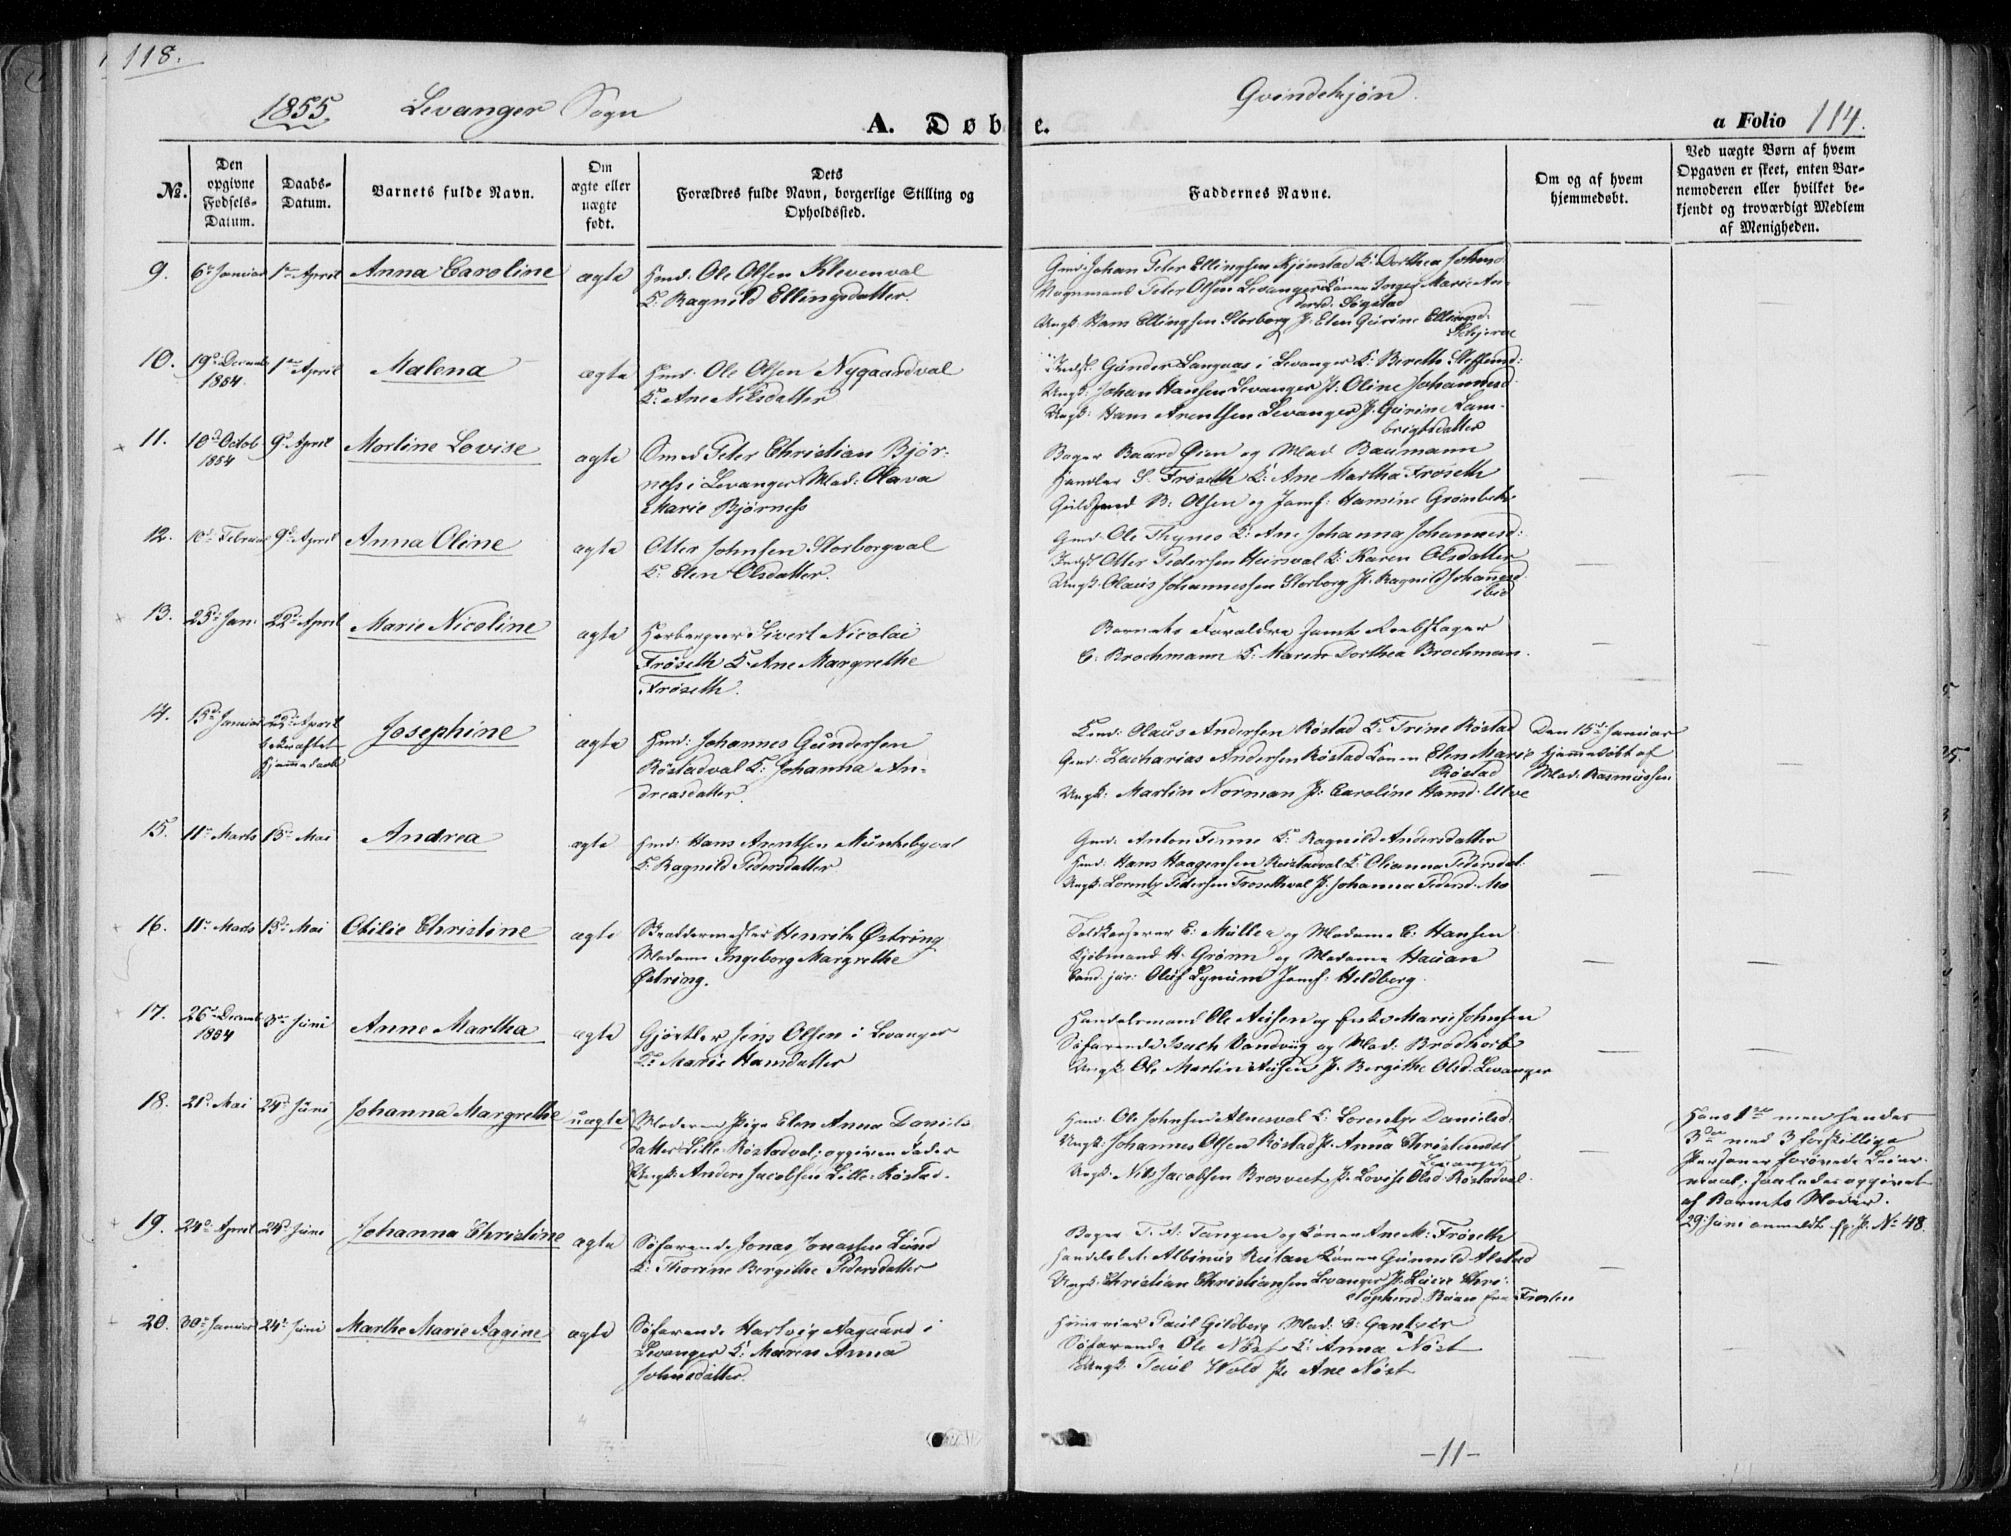 118.
1855. Levanger Sogn
Qvindekjøn.
A. Døbe.
a Folio 114.
No.
Den opgivne Fødsels-Datum.
Daabs-Datum.
Barnets fulde Navn.
Om ægte eller uægte født.
Dets Forældres fulde Navn, borgerlige Stilling og Opholdssted.
Faddernes Navne.
Om og af hvem hjemmedøbt.
Ved uægte Børn af hvem Opgaven er skeet, enten Barnemoderen eller hvilket bekjendt og troværdigt Medlem af Menigheden.
9. 6te Januar 1ste April Anna Caroline ægte Hmd. Ole Olsen Klevenval
K: Ragnild Ellingsdatter.
Gmd. Johan Peter Ellingsen Kjønstad K: Dorthea Johnsd.
Vognmand Peter Olsen Levanger Konen Inger Marie An-
dersd. Søgstad
Ungk: Hans Ellingsen Storborg P. Elen Gurine Ellingsd.
10. 19de Decemb 1854 1ste April Malena ægte Hmd. Ole Olsen Nygaardval
K: Ane Nilsdatter
Indst. Gunder Langaas i Levanger K: Berethe Steffensd:
Ungk: Johan Hansen Levanger P. Oline Johannesd.
Ungk: Hans Arentsen Levanger P. Gurine Lam-
brigtsdatter
11. 10de Octob 1854 9de April Martine Lovise ægte Smed Peter Christian Bjør-
ness i Levanger Mad: Olava
Marie Bjørness
Bager Baard Øien og Mad Baumann
Handler S. Frøseth K: Ane Martha Frøseth
Guldsmed B: Olsen og Jomf: Hansine Grønbech
12. 10de Februar 9de April Anna Oline ægte Otter Johnsen Storborgval
K: Elen Olsdatter.
Gmd. Ole Thynes K: Ane Johanna Johannesd:
Indst Otter Pedersen Heirsval K: Karen Olsdatter
Ungk: Olaus Johannessen Storborg P. Ragnild Johannesd.
ibid
13. 25de Jan. 22de April Marie Nicoline ægte Herbergeer Sivert Nicolai
Frøseth K: Ane Margrethe
Frøseth.
Barnets Forældre samt Reebslager
C: Brochmann K: Maren Dorthea Brochman.
14. 15de Januar 22de April bekræftet Hjemmedaab Josephine ægte Hmd: Johannes Gundersen
Røstadval K: Johanna An-
dreasdatter.
Kmd: Olaus Andersen Røstad K: Trine Røstad
Gmd. Zacharias Andersen Røstad Konen Elen Marie
Røstad
Ungk: Martin Norman P: Caroline Hansd. Utve
Den 15de Januar
hjemmedøbt af
Mad. Rasmussen
15. 11te Marts 13de Mai Andrea ægte Hmd. Hans Arentsen Munkebyval
K: Ragnild Pedersdatter
Gmd. Anton Finne K: Ragnild Andersdatter
Hmd. Hans Haagensen Reistadval K: Olianna Pedersdat.
Ungk: Lorentz Pedersen Frosethval P. Johanna Pedersd. Mo
16. 11te Marts 13de Mai Otilie Christine ægte Skræddermester Henrik Østring
Madame Ingeborg Margrethe
Østring.
Toldkasserer C: Müller og Madame C: Hansen
Kjøbmand H. Grønn og Madame Hauan
Cand. jur: Oluf Lynum Jomf: Heldberg.
17. 26de Decemb 1854 3die Juni Anne Martha ægte Gjørtler Jens Olsen i Levanger
K: Marie Hansdatter
Handelsmand Ole Ausen og Enke Marie Johnsen
Søfarende Isach Vandvig og Mad: Brodholt
Ungk. Ole Martin Ausen P. Bergithe Olsd. Levanger
18. 21de Mai 24de Juni Johanna Margrethe uægte Moderen Pige Elen Anna Daniels
datter Lille Røstadval; opgiven Fader
Ungk: Anders Jacobsen Lille-Røstad.
Hmd. Ole Johnsen Alnesval K: Lorentze Danielsd.
Ungk: Johannes Olsen Røstad P. Anna Christensdt
Levanger
Ungk. Nils Jacobsen Brosveet P. Lovise Olsd. Røstadval.
Hans 1ste men hendes
3die med 3 forskjellige
Personer forøvede Leier-
maal, saaledes opgivet
af Barnets Moder.
29 Juni anmeldt No 48.
19. 24de April 24de Juni Johanna Christine ægte Søfarende Jonas Jonassen Lund
K: Thorine Bergithe Pedersdatter
Bager T. A: Tangen og Konen Ane M: Frøseth
Handelsbt. Albinus Reitan Konen Gunnild Alstad
Ungk: Christian Christiansen Levanger P. Chri-
stophersd. fra Frosten
20. 30te Januar 24de Juni Marthe Marie Aagine ægte Søfarende Hartvig Aagaard i
Levanger K: Maren Anna
Johnsdatter.
Paul Gildberg Mad: C: Gantzer
Søfarende Ole Nøst K: Anna Nøst
Ungk: Paul Wold P. Ane Nøst
-11-